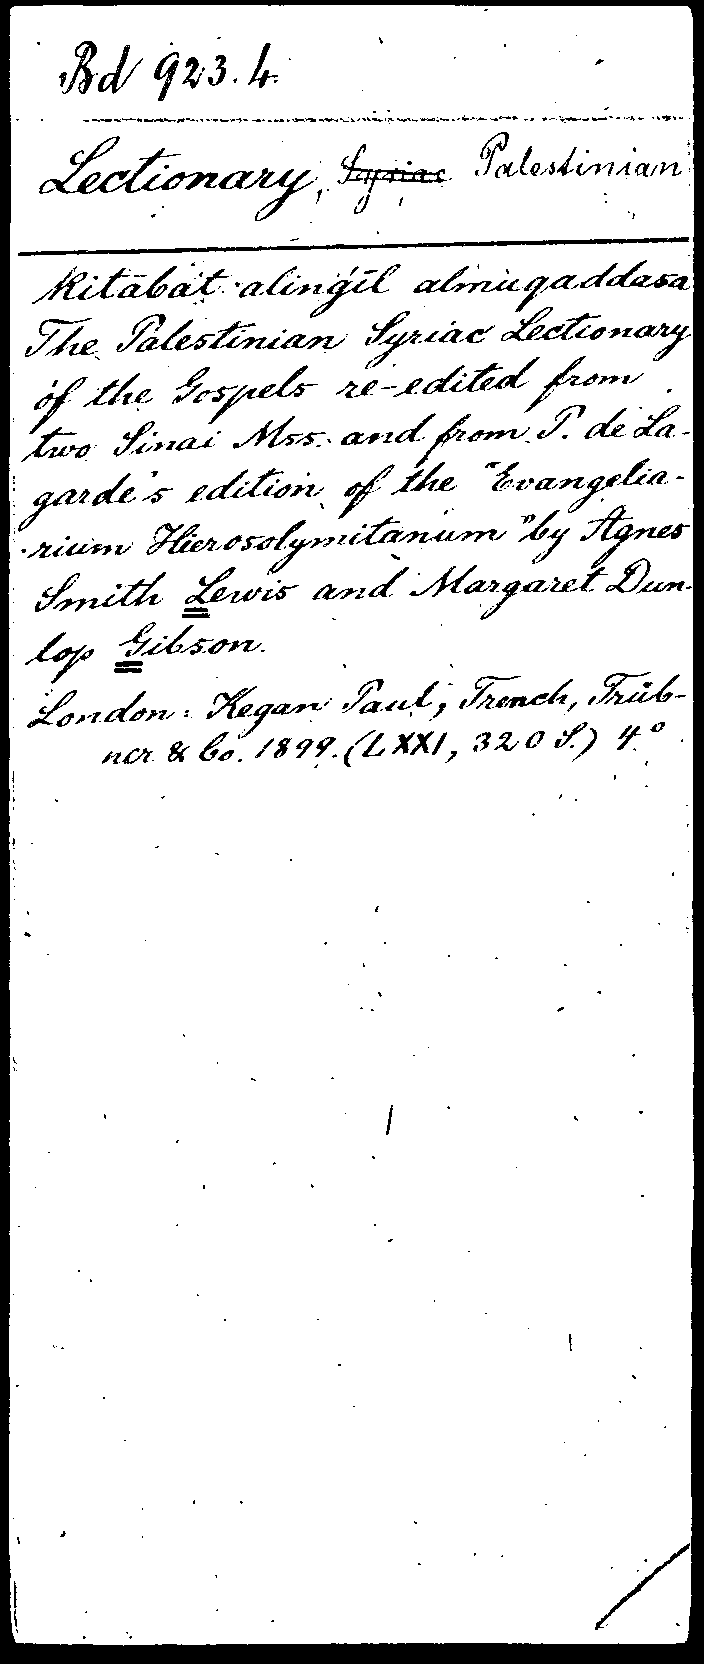 Bd 923.4.
Lectionary, Syriac Palestinian
Kitābāt alinǵīl almuqaddasa
The Palestinian Syriac Lectionary
of the Gospels re-edited from
two Sinai Mss. and from P. de La-
garde's edition of the "Evangelia-
rium Hierosolymitanum" by Agnes
Smith Lewis and Margaret Dun-
lop Gibson.
London: Kegan Paul, Trench, Trüb-
ner & Co. 1899. (LXXI, 320 S.) 4°